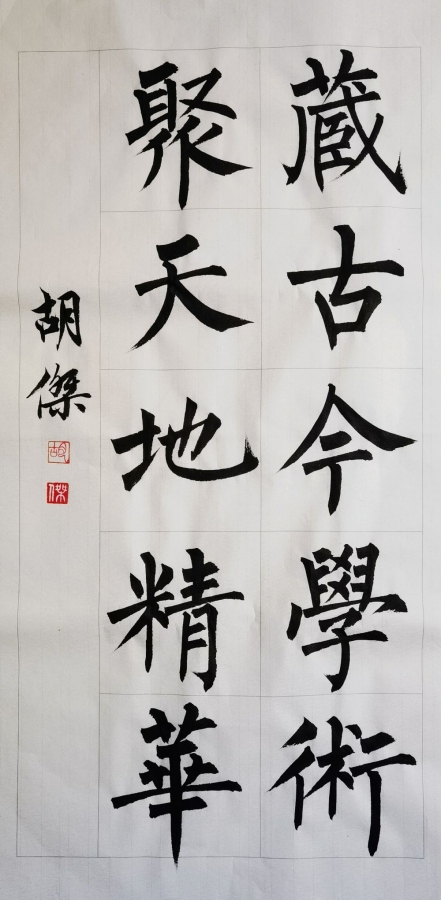 藏古今學術
聚天地精華
胡傑
胡
傑